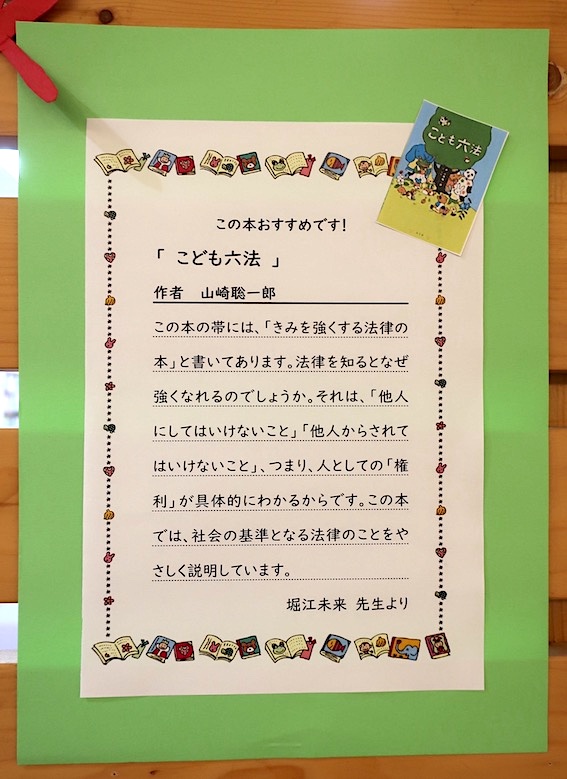 こども六法
この本おすすめです!
「 こども六法 」
作者 山崎聡一郎
この本の帯には、「きみを強くする法律の
本」と書いてあります。法律を知るとなぜ
強くなれるのでしょうか。それは、「他人
にしてはいけないこと」「他人からされて
はいけないこと」、つまり、人としての「権
利」が具体的にわかるからです。この本
では、社会の基準となる法律のことをや
さしく説明しています。
堀江未来 先生より